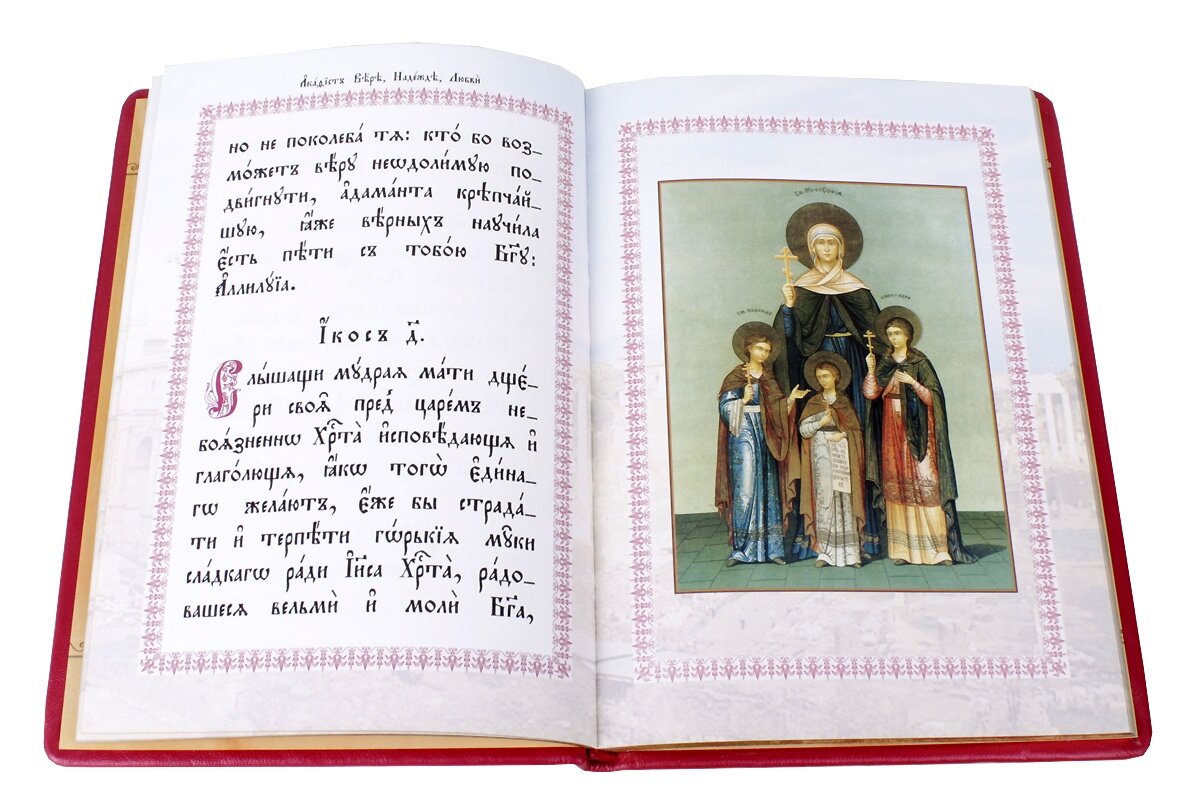 А҆ка́ѳїстъ Вѣ́рѣ, Наде́ждѣ, Любви̑
но не поколеба́ тѧ: кто́ бо воз_
мо́жетъ вѣ́рꙋ неѡдоли́мꙋю по_
дви́гнꙋти, а҆дама́нта крѣпча́й_
шꙋю, ꙗ҆́же вѣ́рныхъ наꙋчи́ла
є҆́сть пѣ́ти съ тобо́ю Бг҃ꙋ:
А҆ллилꙋ́їа.
І҆́косъ д҃.
Слы́шащи мꙋ́драѧ ма́ти дщє́_
ри своѧ̑ пред̾ царе́мъ не_
боѧ́зненнѡ Хрⷭ҇та̀ и҆сповѣ́дающѧ и҆
глаго́лющѧ, ꙗ҆́кѡ того̀ є҆ди́на_
гѡ жела́ютъ, є҆́же бы страда́_
ти и҆ терпѣ́ти гѡ́рькїѧ мꙋ́ки
сла́дкагѡ ра́ди І҆и҃са Хрⷭ҇та̀, ра́до_
вашесѧ вельмѝ и҆ молѝ Бг҃а,
Св. Му. Софія.